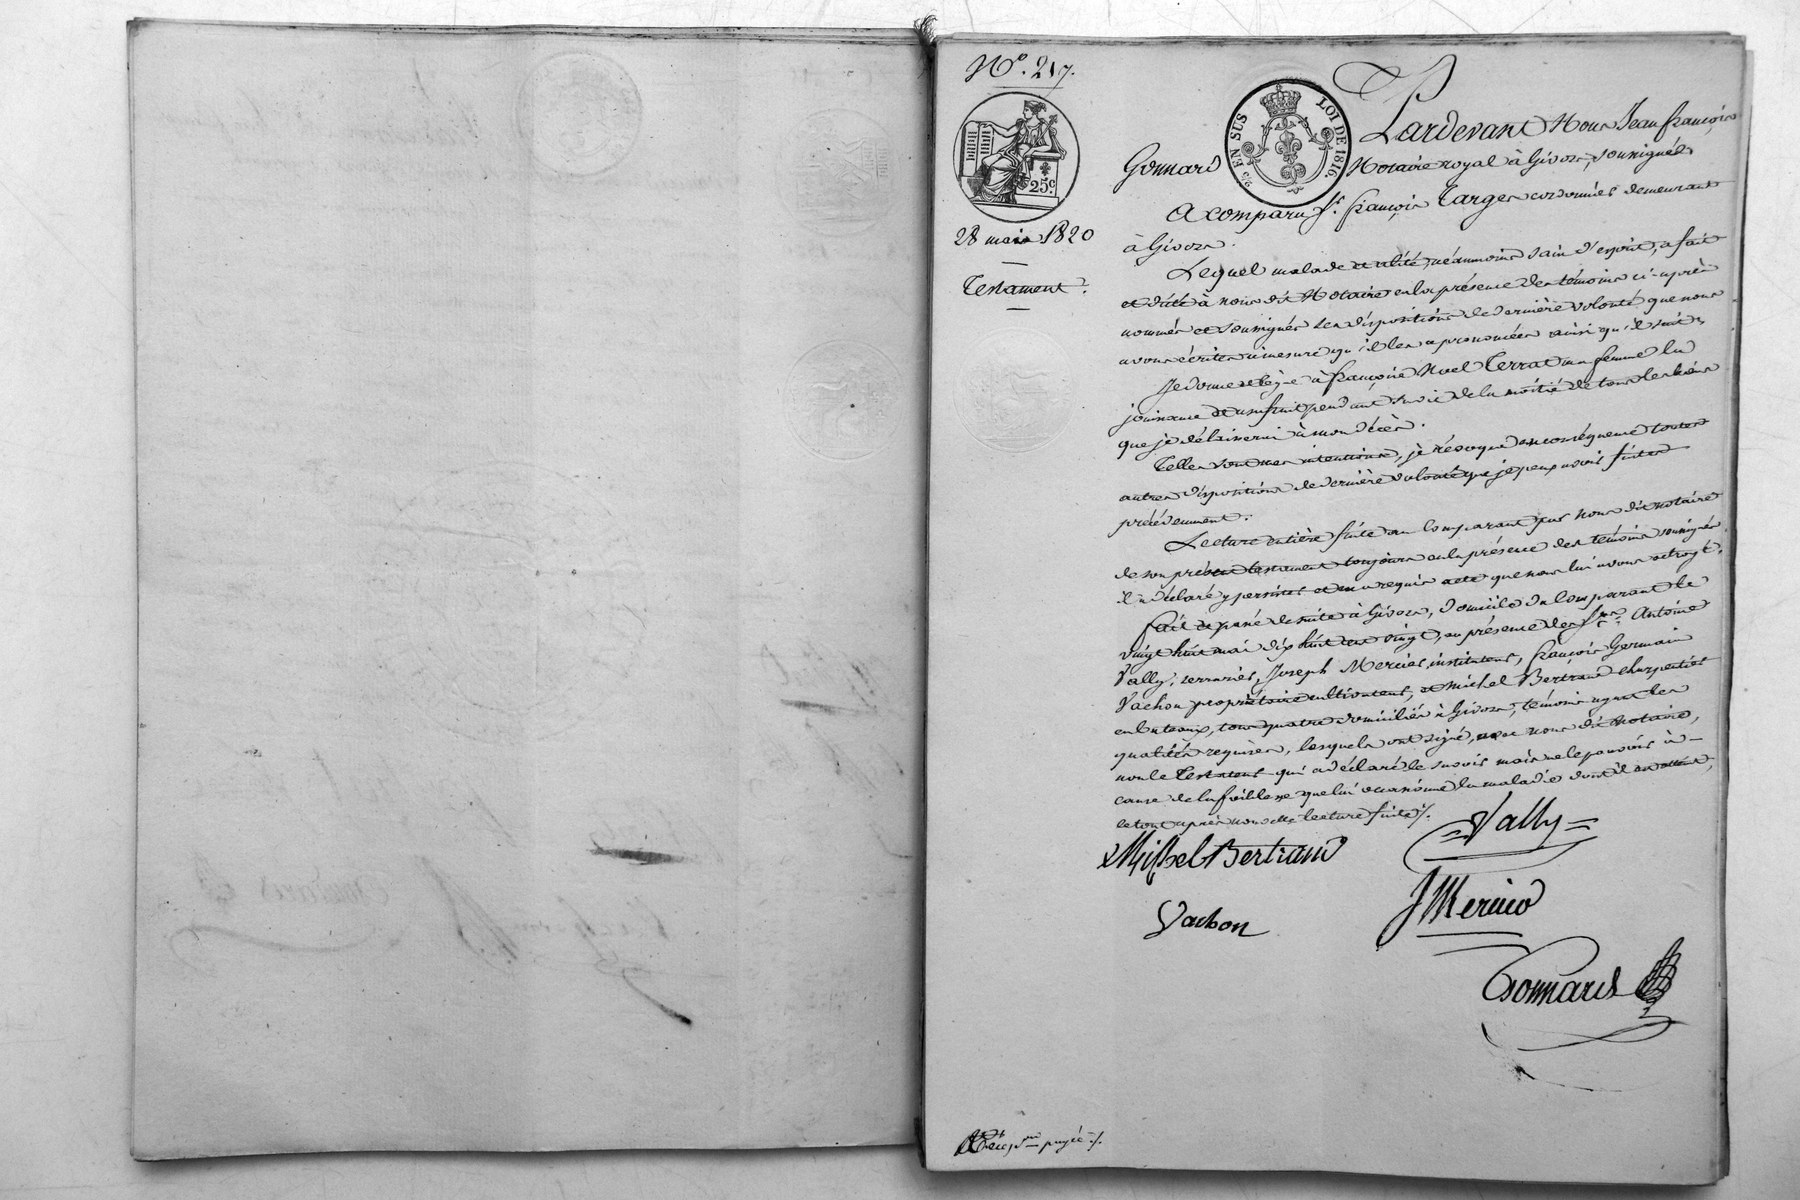 N.º 217.
25.c
28 mai 1820
Testament.
EN SUS LOI DE 1816.
Pardevant Nous Jean françois
Gonnard Notaire royal à Givors, soussignés
A comparu Sr. françois Targe cordonnier demeurant
à Givors.
Lequel malade et alité, néanmoins sain d'esprit, a fait
et dicté à nous dit Notaire en la présence des témoins ci-après
nommés et soussignés ses dispositions de dernière volonté que nous
avons écrites à mesure qu'il les a prononcées ainsi qu'il suit
Je donne et lègue à françoise Noel Terrat ma femme la
jouissance et usufruit pendant sa vie de la moitié de tous les biens
que je délaisserai à mon décès.
Telles sont mes intentions, je révoque en conséquence toutes
autres dispositions de dernière volonté que je peux avoir faites
précédemment.
Lecture entière faite au comparant par nous dit notaire
de son présent testament toujours en la présence des témoins soussignés
il a déclaré y persister et en a requis acte que nous lui avons octroyé.
fait et passé de suite à Givors, domicile du comparant le
vingt huit mai dix huit cent vingt, en présence des Srs. Antoine
Vally, verrier, Joseph Mercier instituteur, françois Germain
Vachon propriétaire cultivateur, et michel Bertrand charpentier
en bateaux, tous quatre domiciliés à Givors, témoins ayant les
qualités requises, lesquels ont signé, avec nous dit Notaire,
non le Testateur qui a déclaré le savoir mais ne le pouvoir à
cause de la faiblesse que lui occasionne la maladie dont il est atteint,
le tout après nouvelle lecture faite ./.
Vally
Michel Bertrand
JMercier
Vachon
Gonnard